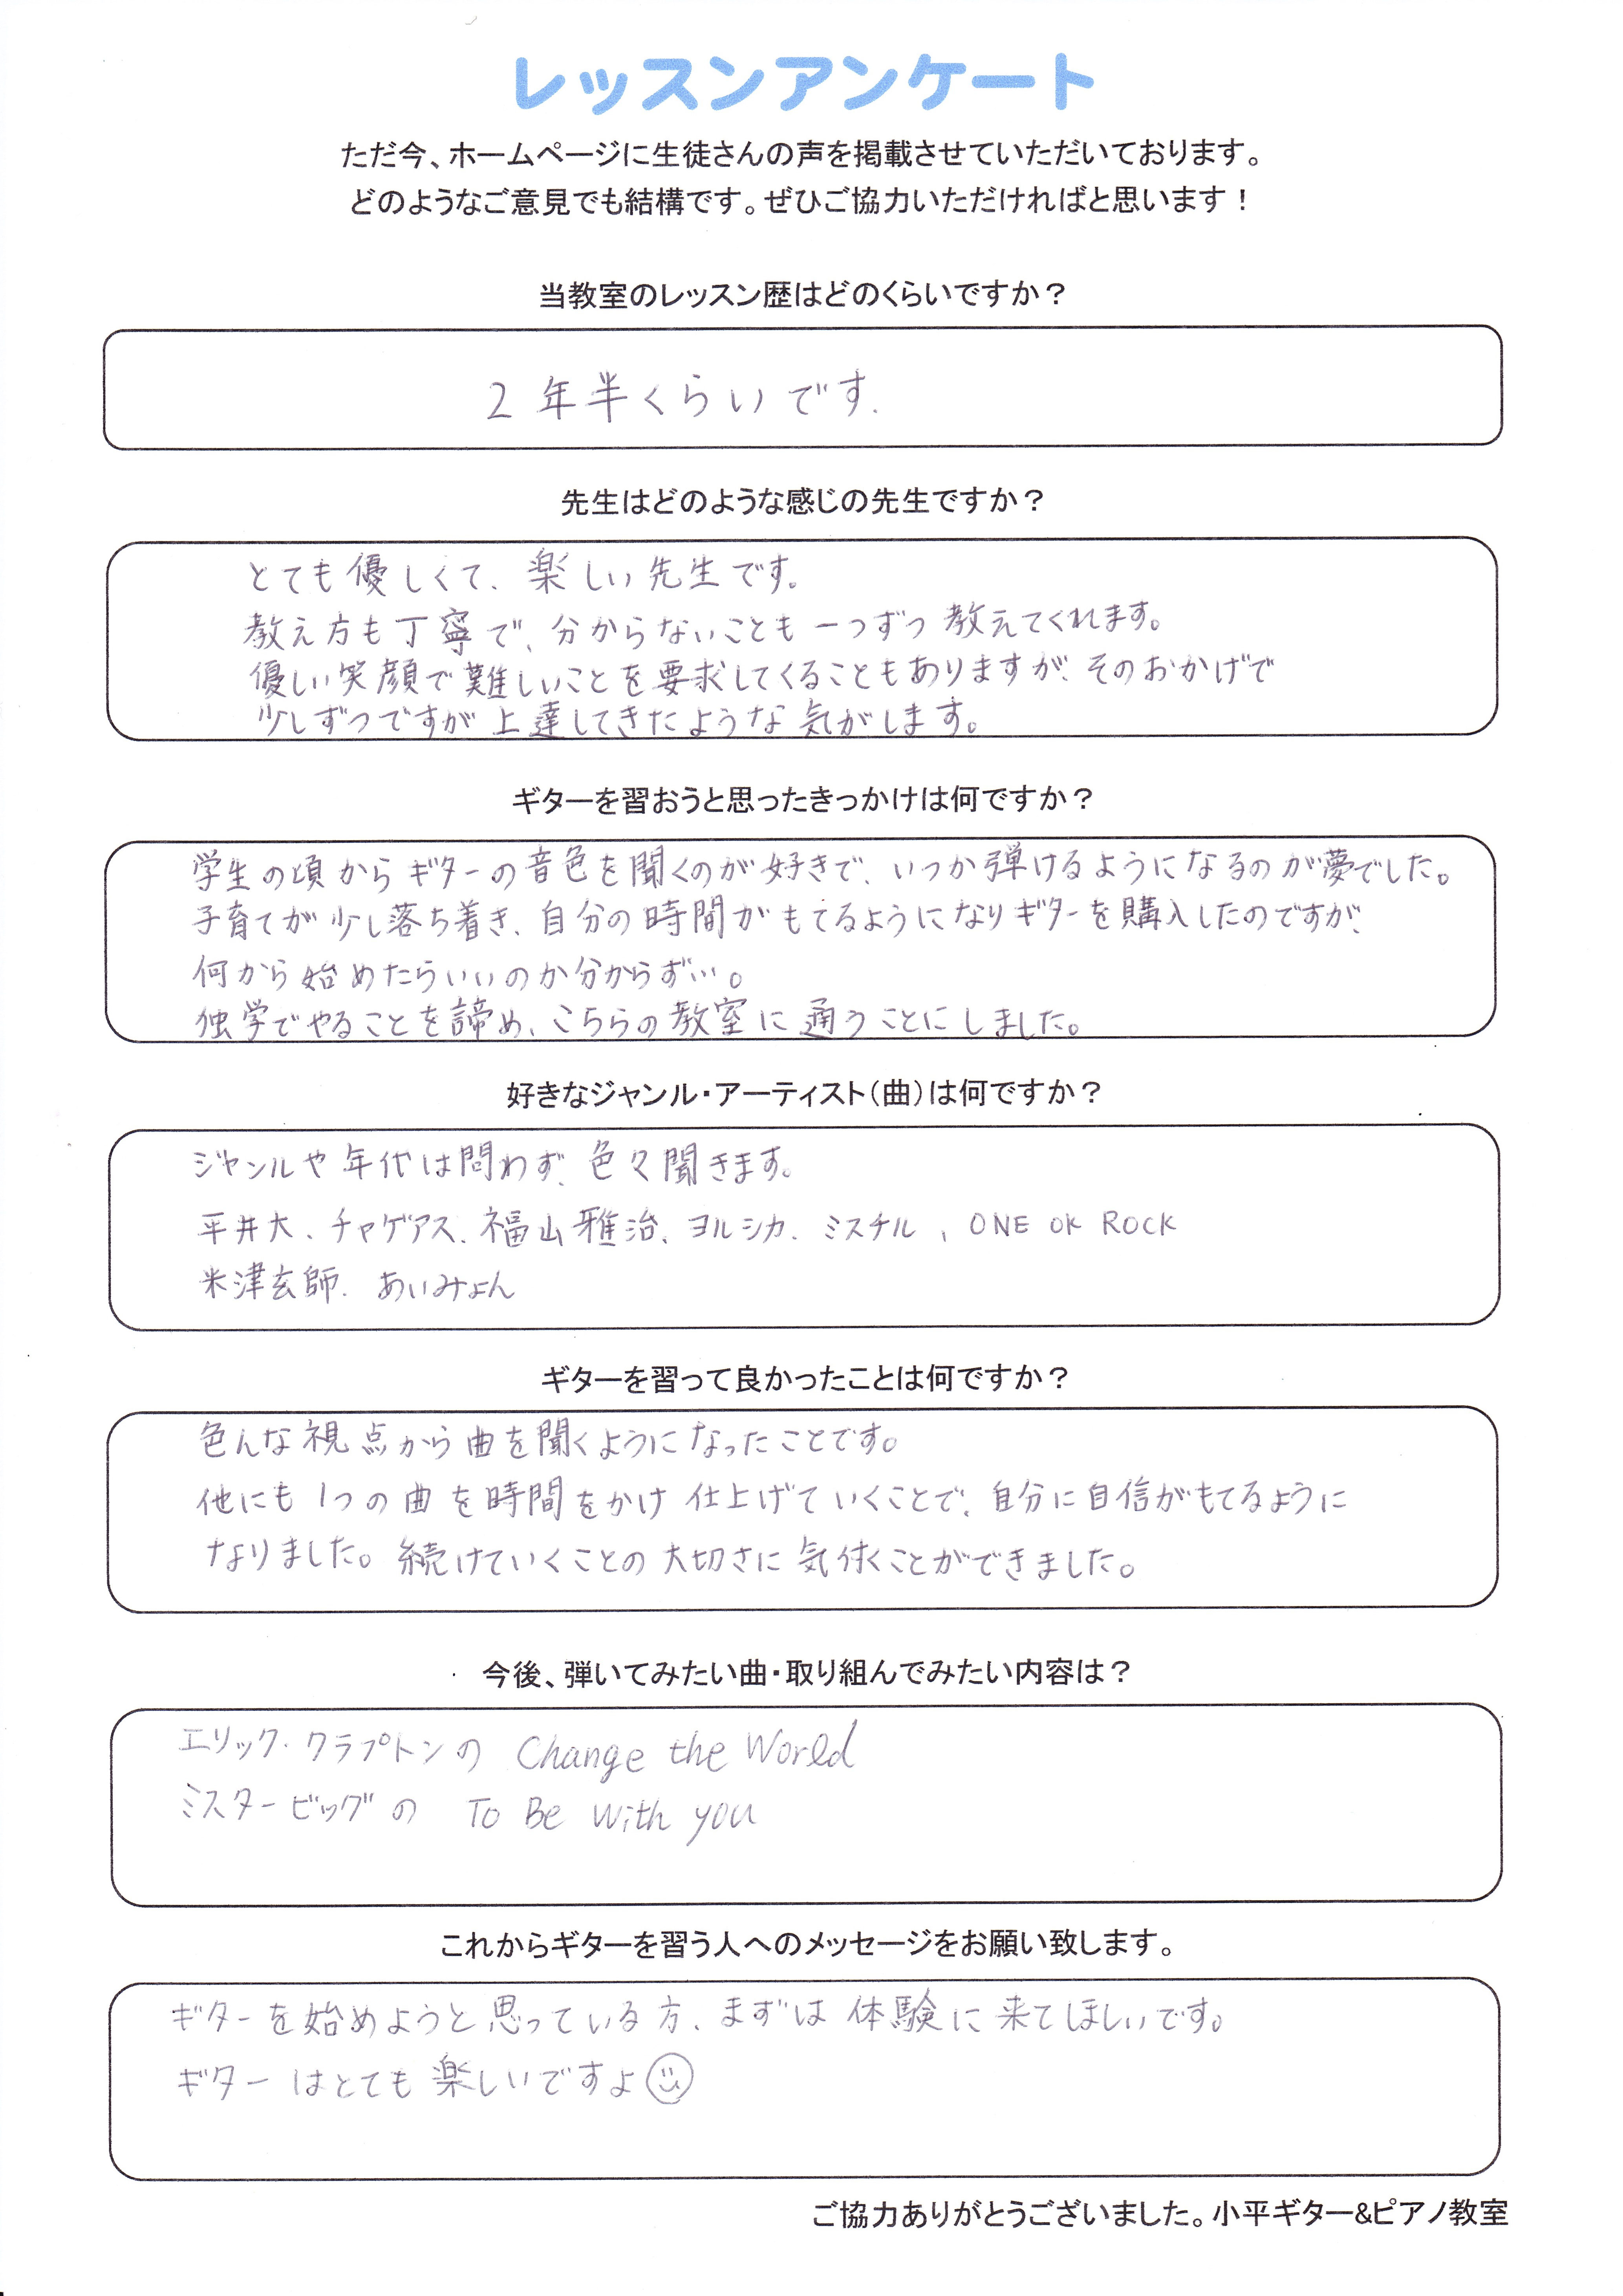 レッスンアンケート
ただ今、ホームページに生徒さんの声を掲載させていただいております。
どのようなご意見でも結構です。ぜひご協力いただければと思います！
当教室のレッスン歴はどのくらいですか？
2年半くらいです.
先生はどのような感じの先生ですか？
とても優しくて、楽しい先生です。
教え方も丁寧で、分からないことも一つずつ教えてくれます。
優しい笑顔で難しいことを要求してくることもありますが、そのおかげで
少しずつですが上達してきたような気がします。
ギターを習おうと思ったきっかけは何ですか？
学生の頃からギターの音色を聞くのが好きで、いつか弾けるようになるのが夢でした。
子育てが少し落ち着き、自分の時間がもてるようになりギターを購入したのですが、
何から始めたらいいのか分からず…。
独学でやることを諦め、こちらの教室に通うことにしました。
好きなジャンル・アーティスト（曲）は何ですか？
ジャンルや年代は問わず、色々聞きます。
平井大、チャゲアス、福山雅治、ヨルシカ、ミスチル、ONE OK ROCK
米津玄師、あいみょん
ギターを習って良かったことは何ですか？
色んな視点から曲を聞くようになったことです。
他にも1つの曲を時間をかけ仕上げていくことで、自分に自信がもてるように
なりました。続けていくことの大切さに気付くことができました。
今後、弾いてみたい曲・取り組んでみたい内容は？
エリック・クラプトンの Change the World
ミスタービッグの To Be With you
これからギターを習う人へのメッセージをお願い致します。
ギターを始めようと思っている方、まずは体験に来てほしいです。
ギターはとても楽しいですよ
ご協力ありがとうございました。小平ギター&ピアノ教室